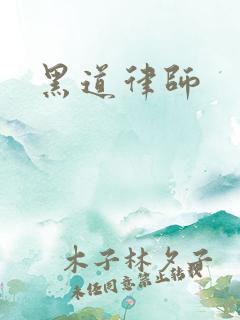 黑道律師
木子林夕子
未经同意禁止转载